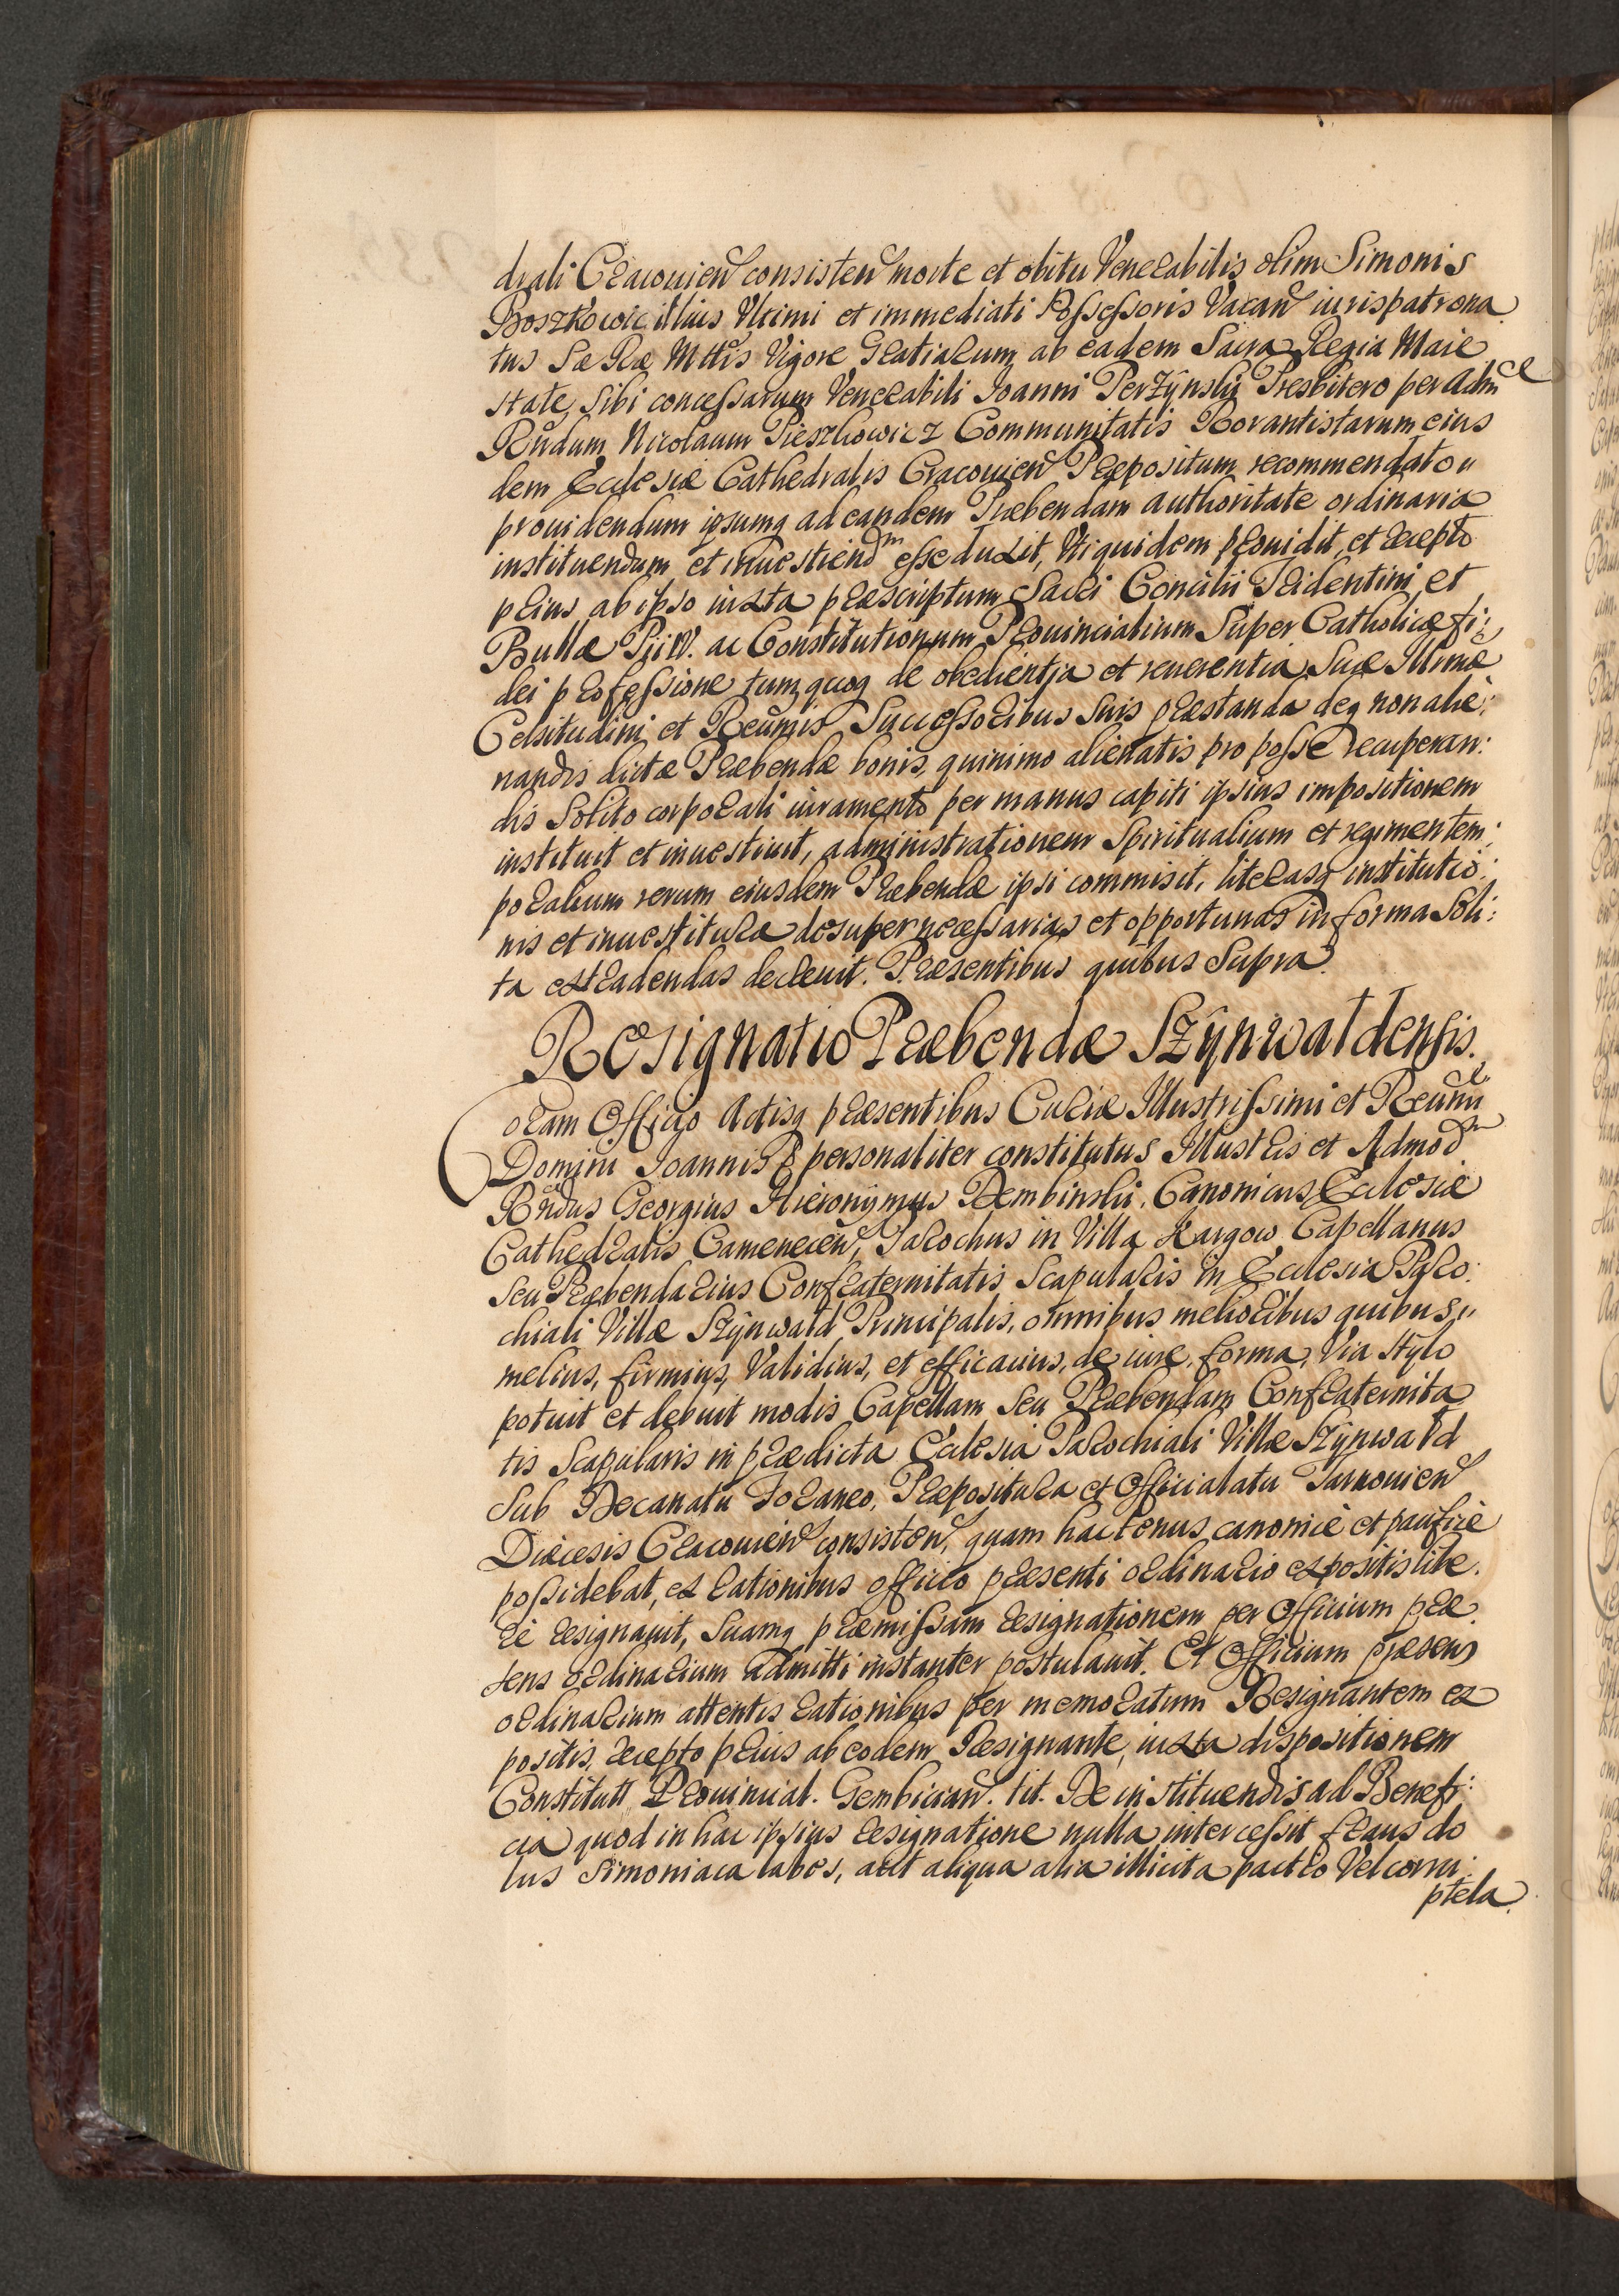 drali Cracovien̄ consisten̄ morte et obitu Venerabilis olim Simonis
Boszkowic illius Ultimi et immediati Possessoris Vacan̄ iurispatrona
tus Sæ Ræ Mttis Vigore Gratiarum ab eadem Sacra Regia Maie
state, sibi concessarum Venerabili Ioanni Perzÿnski Presbitero per Adm
Rndum Nicolaum Pieszkowicz Communitatis Rorantistarum eius
dem Ecclesiæ Cathedralis Cracovien̄ Præpositum recommendato
prouidendum ipsumq ad eandem Præbendam authoritate ordinaria
instituendum et inuestiendm esse duxit, Uti quidem prouidit, et recepto
prius ab ipso iuxta præscriptum Sacri Concilii Tridentini et
Bullæ Pii IV. ac Constitutionum Prouincialium Super Catholicæ fi:
dei professione tum quoq de obedientia et reuerentia Suæ Illmæ
Celsitudini et Reumis Successoribus Suis præstanda deq non alie:
nandis dictæ Præbendæ bonis, quinimo alienatis pro posse recuperan:
dis Solito corporali iuramento per manus capiti ipsius impositionem
instituit et inuestiuit, administrationem Spiritualium et regimen tem:
poralium rerum eiusdem Præbendæ ipsi commisit, literasq institutio:
nis et inuestituræ desuper necessarias et opportunas in forma Soli:
ta extradendas decreuit. Præsentibus quibus Supra.
Resignatio Præbendæ Szÿnwaldensis.
Coram Officio Actisq præsentibus Curiæ Illustrissimi et Reumi
Domini Ioannis P personaliter constitutus Illustris et Admodm
Rndus Georgius Hieronÿmus Dembinski, Canonicus Ecclesiæ
Cathedralis Camenecen̄, Parochus in Villa Kargow Capellanus
seu Præbendarius Confraternitatis Scapularis in Ecclesia Paro:
chiali Villæ Szÿnwald Principalis, omnibus melioribus quibus
melius, firmius, Validius, et efficacius, de iure, forma, Via Stylo
potuit et debuit modis Capellam seu Præbendam Confraternita
tis Scapularis in prædicta Ecclesia Parochiali Villæ Szÿnwald
Sub Decanatu Foraneo, Præpositura et Officialatu Tarnovien̄
Diæcesis Cracovien̄ consisten̄, quam hactenus canonicè et pacificè
possidebat, ex rationibus officio præsenti ordinario expositis libe:
rè resignauit, Suamq præmissam resignationem per Officium præ:
sens ordinarium admitti instanter postulauit. Et Officium præsens
ordinarium attentis rationibus per memoratum Resignantem ex
positis, recepto prius ab eodem Resignante, iuxta dispositionem
Constitutt Prouincial. Gembician̄. tit. De instituendis ad Benefi:
cia quod in hac ipsius resignatione nulla intercessit fraus do
lus Simoniaca labes, aut aliqua alia illicita pactio Vel corru:
ptela.